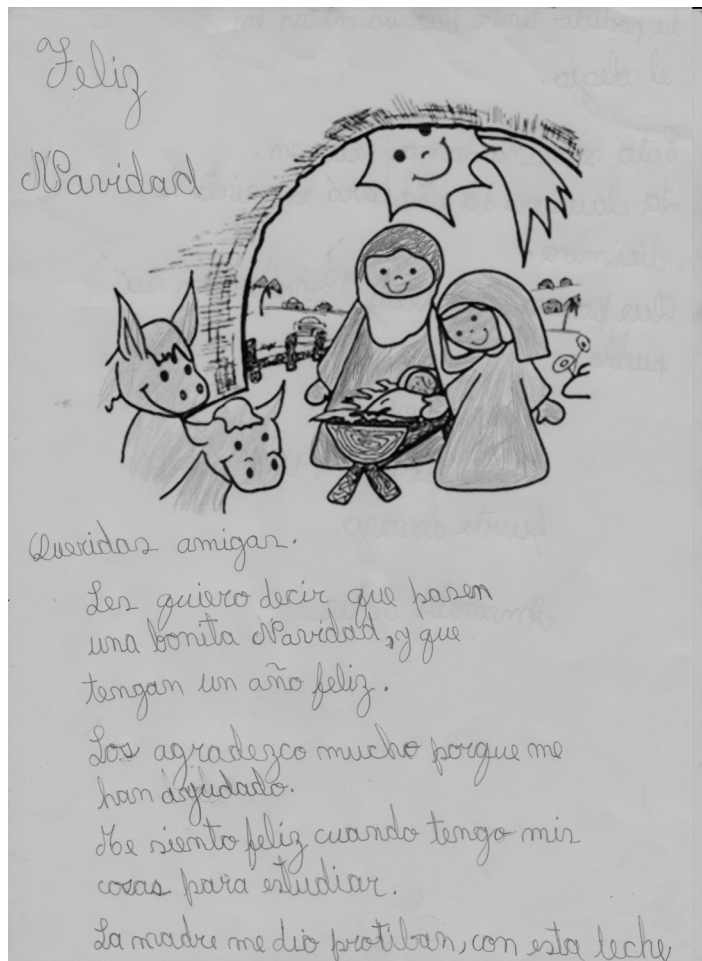 Feliz
Navidad
Queridas amigas.
Les quiero decir que pasen
una bonita Navidad, y que
tengan un año feliz.
Los agradezco mucho porque me
han ayudado.
Me siento feliz cuando tengo mis
cosas para estudiar.
La madre me dio protiban, con esta leche